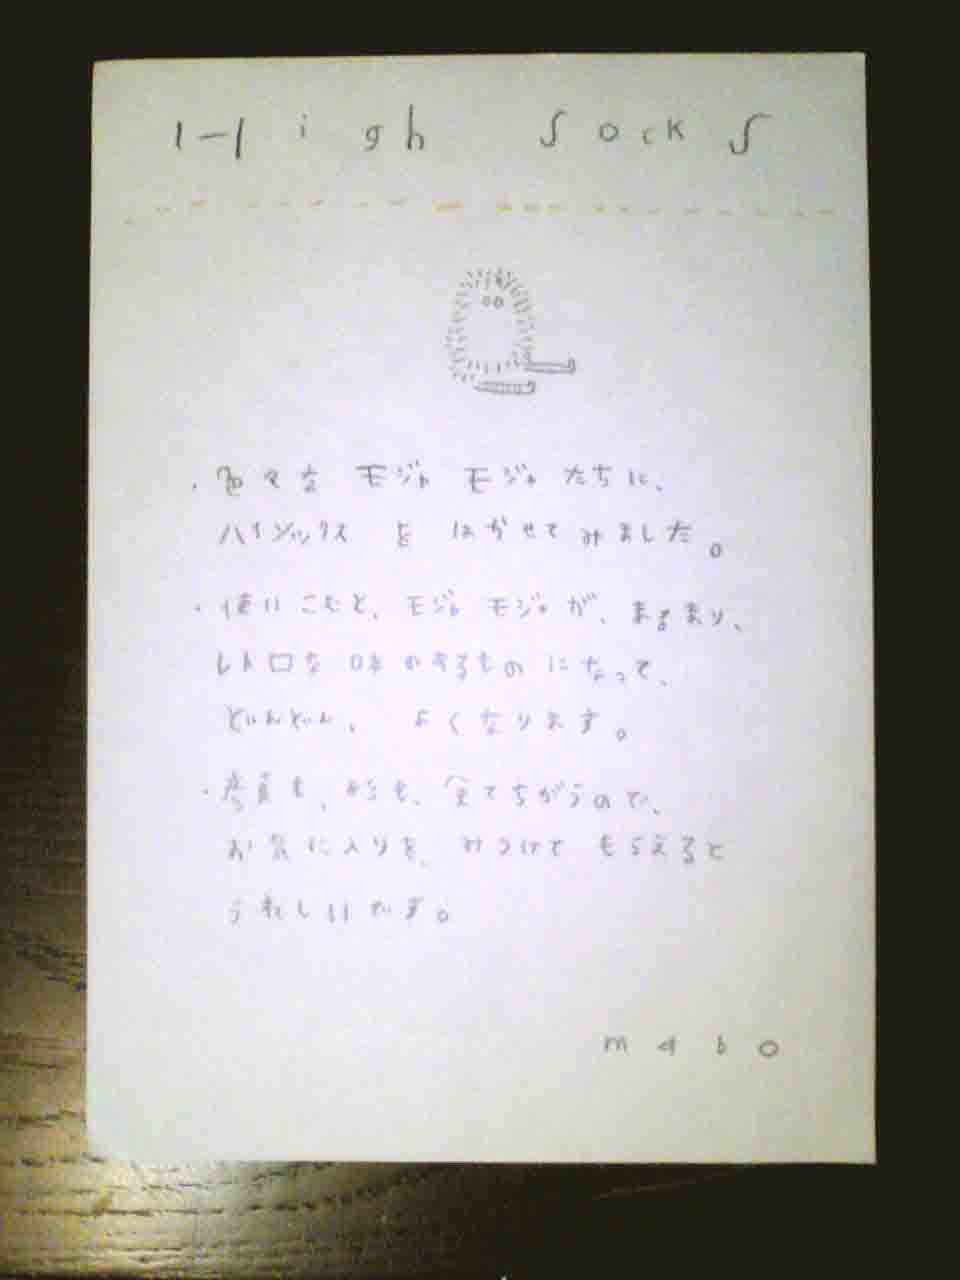 High Socks
・色々な モジャモジャたちに、
ハイソックス を はかせてみました。
・使いこむと、モジャモジャが、まるまり、
レトロな味があるものになって、
どんどん、よくなります。
・顔も、形も、全てちがうので、
お気に入りを、みつけて もらえると
うれしいです。
mabo